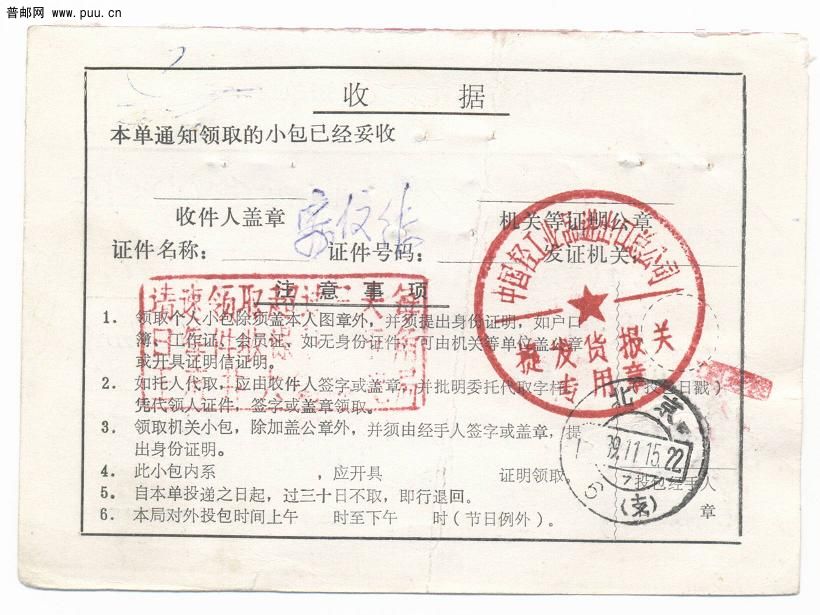 普邮网
www.puu.cn
收 据
本单通知领取的小包已经妥收
收件人盖章
机关等证明公章
证件名称:
证件号码:
发证机关:
注意事项
1. 领取个人小包除须盖本人图章外,并须提出身份证明,如户口
簿、工作证、会员证、如无身份证件,可由机关等单位盖公章
或开具证明信证明。
2. 如托人代取,应由收件人签字或盖章,并批明委托代取字样,
凭代领人证件,签字或盖章领取。
3. 领取机关小包,除加盖公章外,并须由经手人签字或盖章,提
出身份证明。
4. 此小包内系 ,应开具 证明领取。
5. 自本单投递之日起,过三十日不取,即行退回。
6. 本局对外投包时间上午 时至下午 时(节日例外)。
日戳)
投包经手人
章
中国轻工业品进出口总公司
提发货报关
专用章
请速领取超过三天每
北京
11.15.22
(支)
16